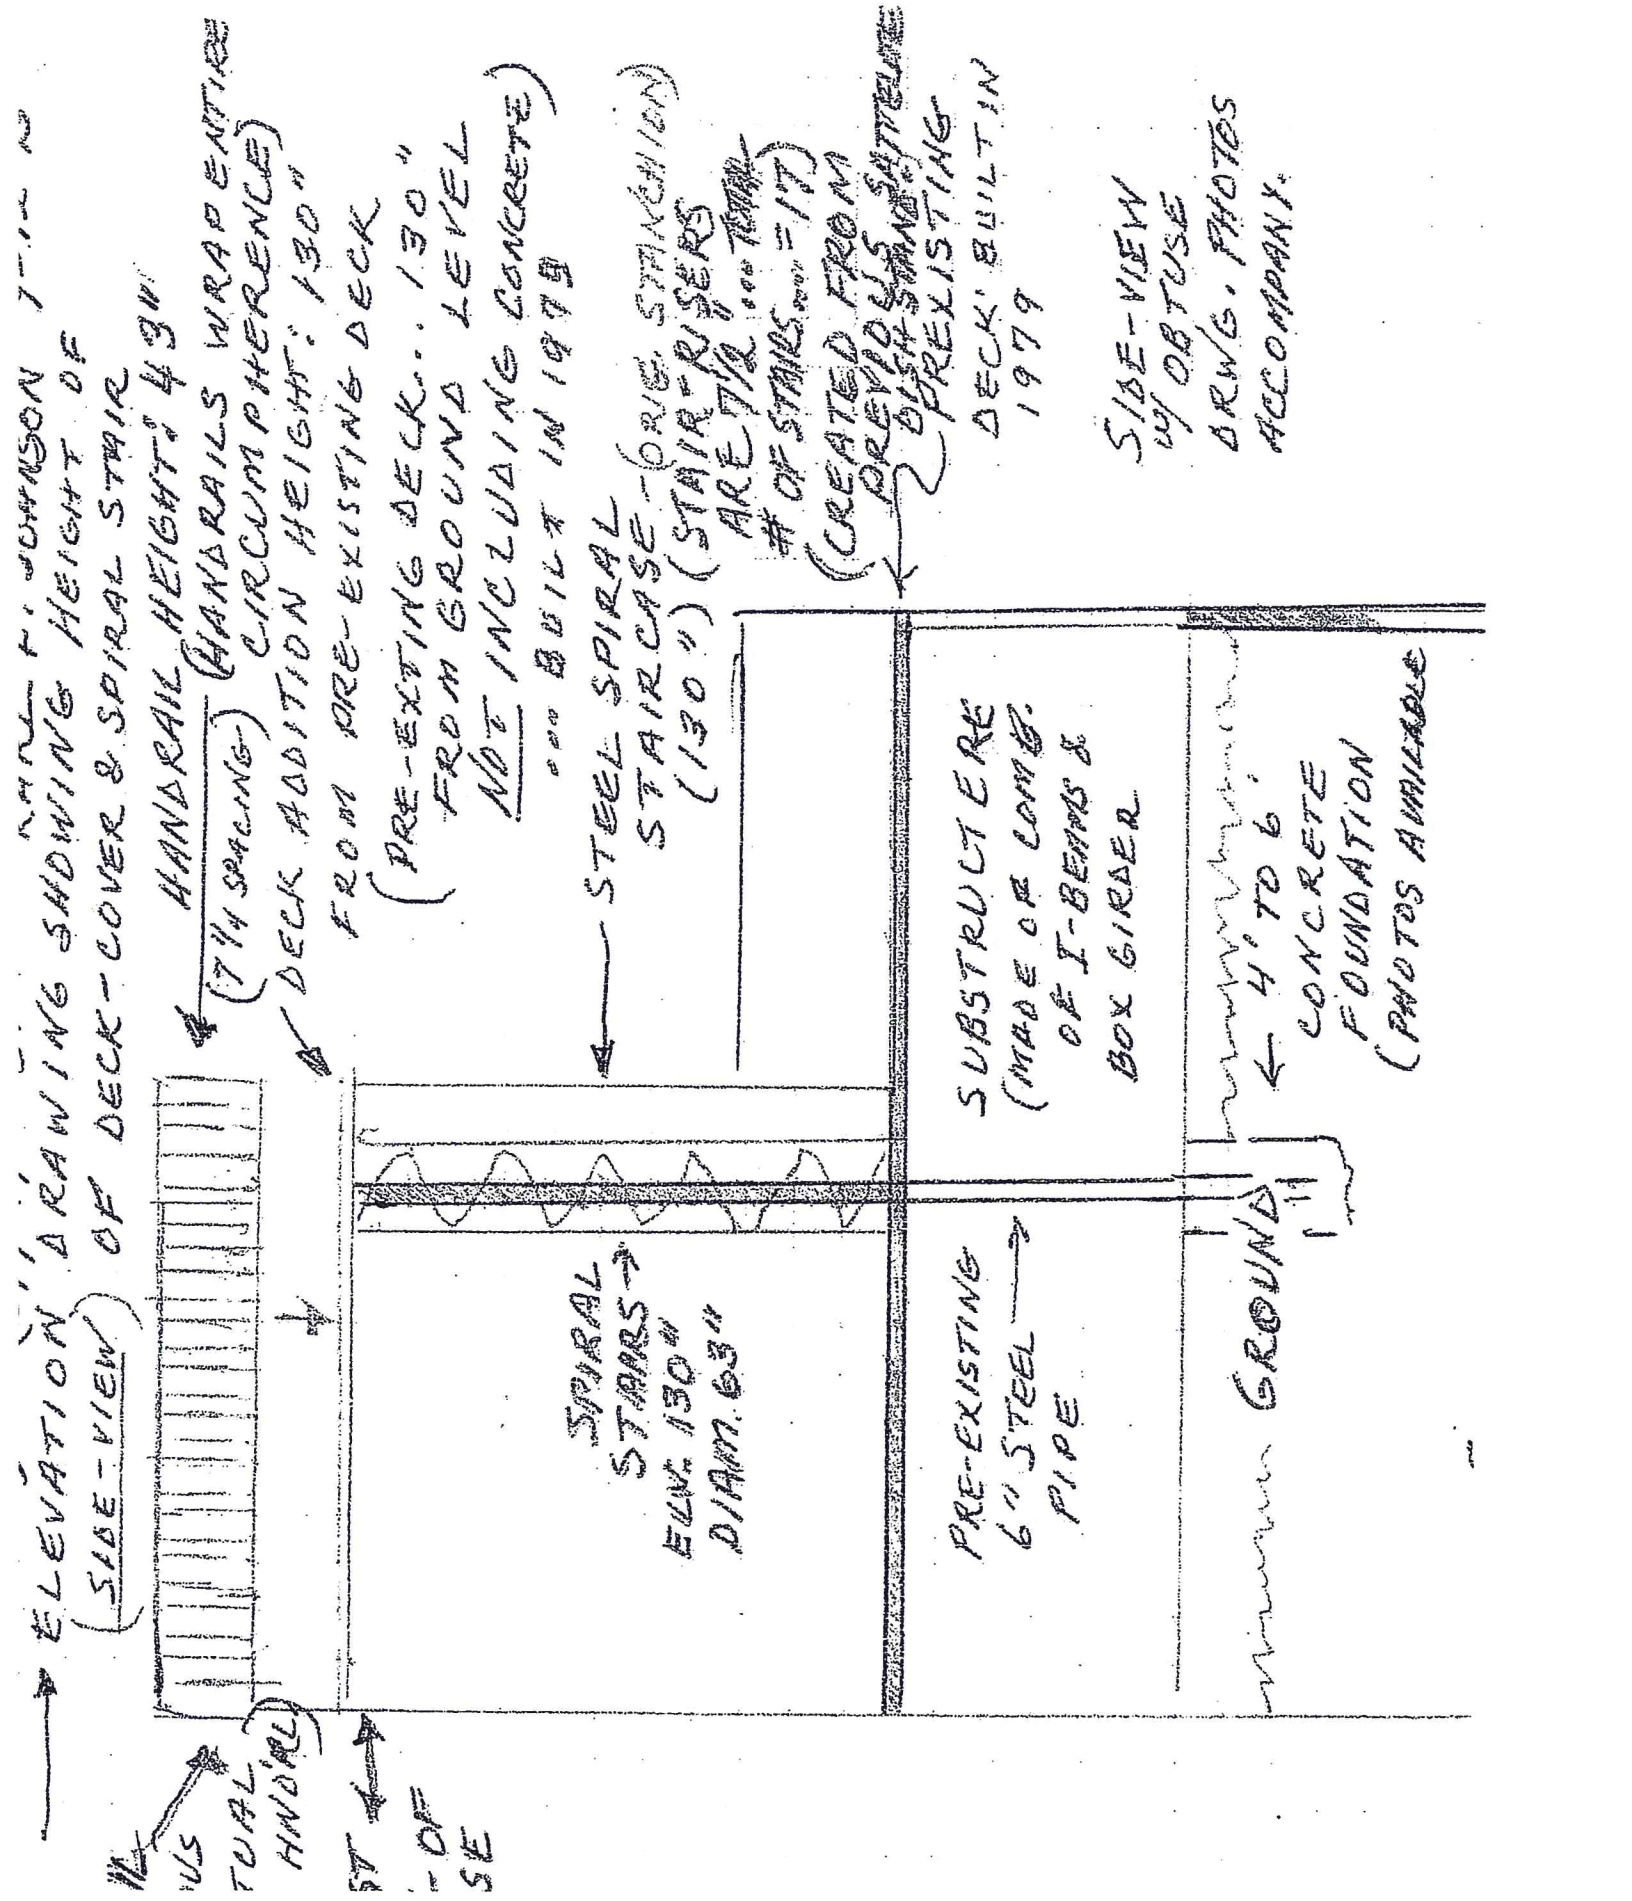 JOHNSON
→ ELEVATION" DRAWING SHOWING HEIGHT OF
(SIDE-VIEW) OF DECK-COVER & SPIRAL STAIR
HANDRAIL HEIGHT: 43"
(HANDRAILS WRAP ENTIRE
CIRCUMPHERENCE)
(7 1/4 SPACING)
DECK ADDITION HEIGHT: 130"
FROM PRE-EXISTING DECK
(PRE-EXTING DECK... 130"
FROM GROUND LEVEL
NOT INCLUDING CONCRETE)
... BUILT IN 1979
← STEEL SPIRAL
STAIRCASE - (ORIG STANCHION)
(130") (STAIR-RISERS
ARE 7 1/2" ... TOTAL
# OF STAIRS.... = 17)
(CREATED FROM
PREVIOUS
DISH STAND SATTELITE
PREXISTING
DECK BUILT IN
1979
SIDE-VIEW
W/ OBTUSE
DRWG. PHOTOS
ACCOMPANY.
SPIRAL
STAIRS →
ELV. 130"
DIAM. 63"
SUBSTRUCTERE
(MADE OF COMB.
OF I-BEAMS &
BOX GIRDER
PRE-EXISTING
6" STEEL →
PIPE
GROUND
← 4' TO 6'
CONCRETE
FOUNDATION
(PHOTOS AVAILABLE
US
TUAL
HNDRL)
ST
- OF
SE